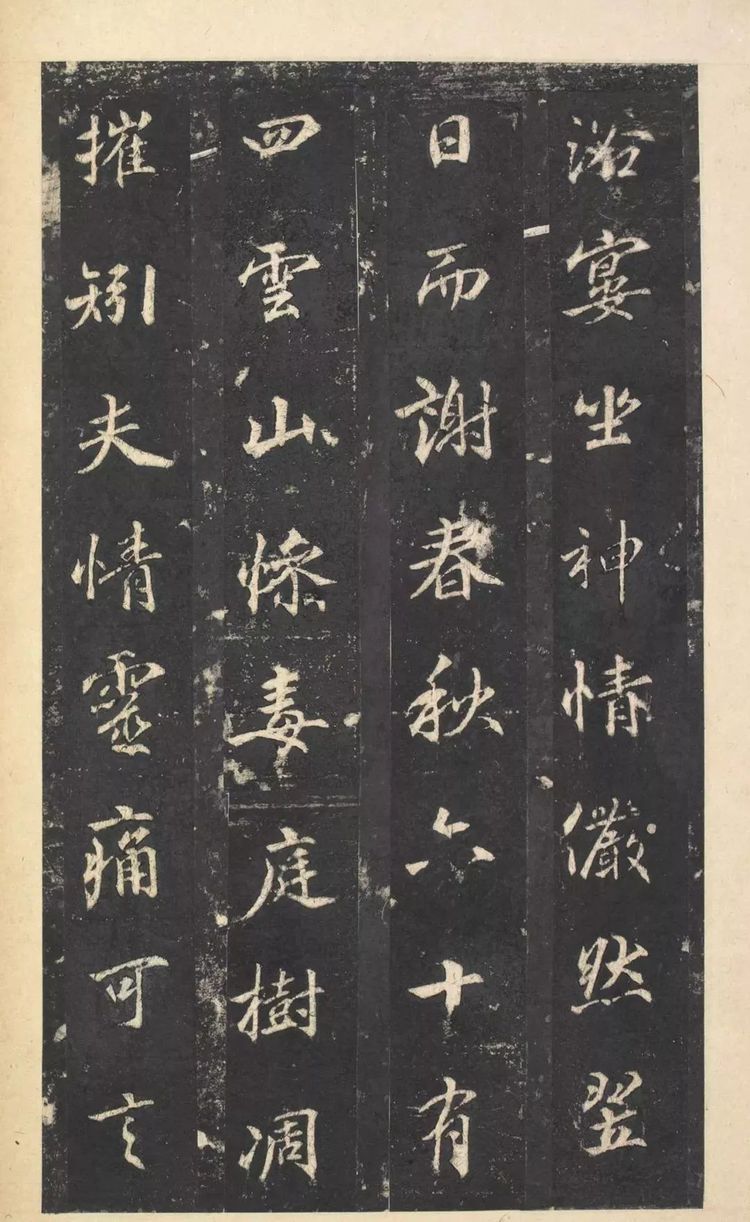 浴宴坐神情儼然翌
日而謝春秋六十有
四雲山慘毒庭樹凋
摧矧夫情靈痛可言